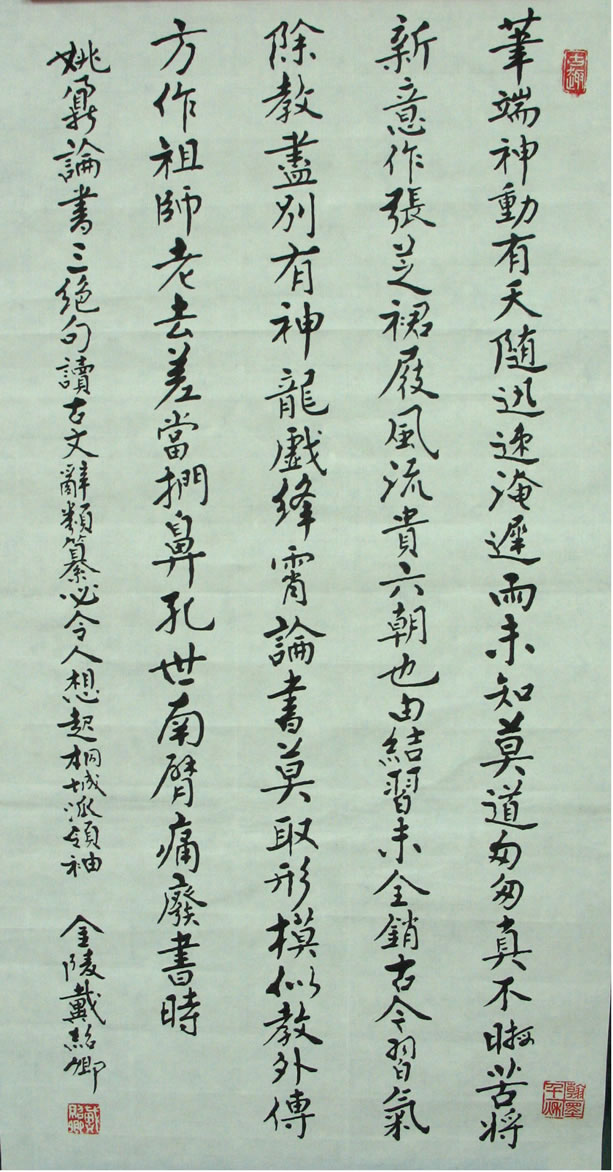 筆端神動有天隨迅速淹遲兩未知莫道匆匆真不暇苦將
新意作張芝裙屐風流貴六朝也由結習未全銷古今習氣
除教盡別有神龍戲絳霄論書莫取形模似教外傳
方作祖師老去差當捫鼻孔世南臂痛廢書時
姚鼐論書三絕句讀古文辭類纂必令人想起桐城派領袖 金陵戴紹卿
古趣